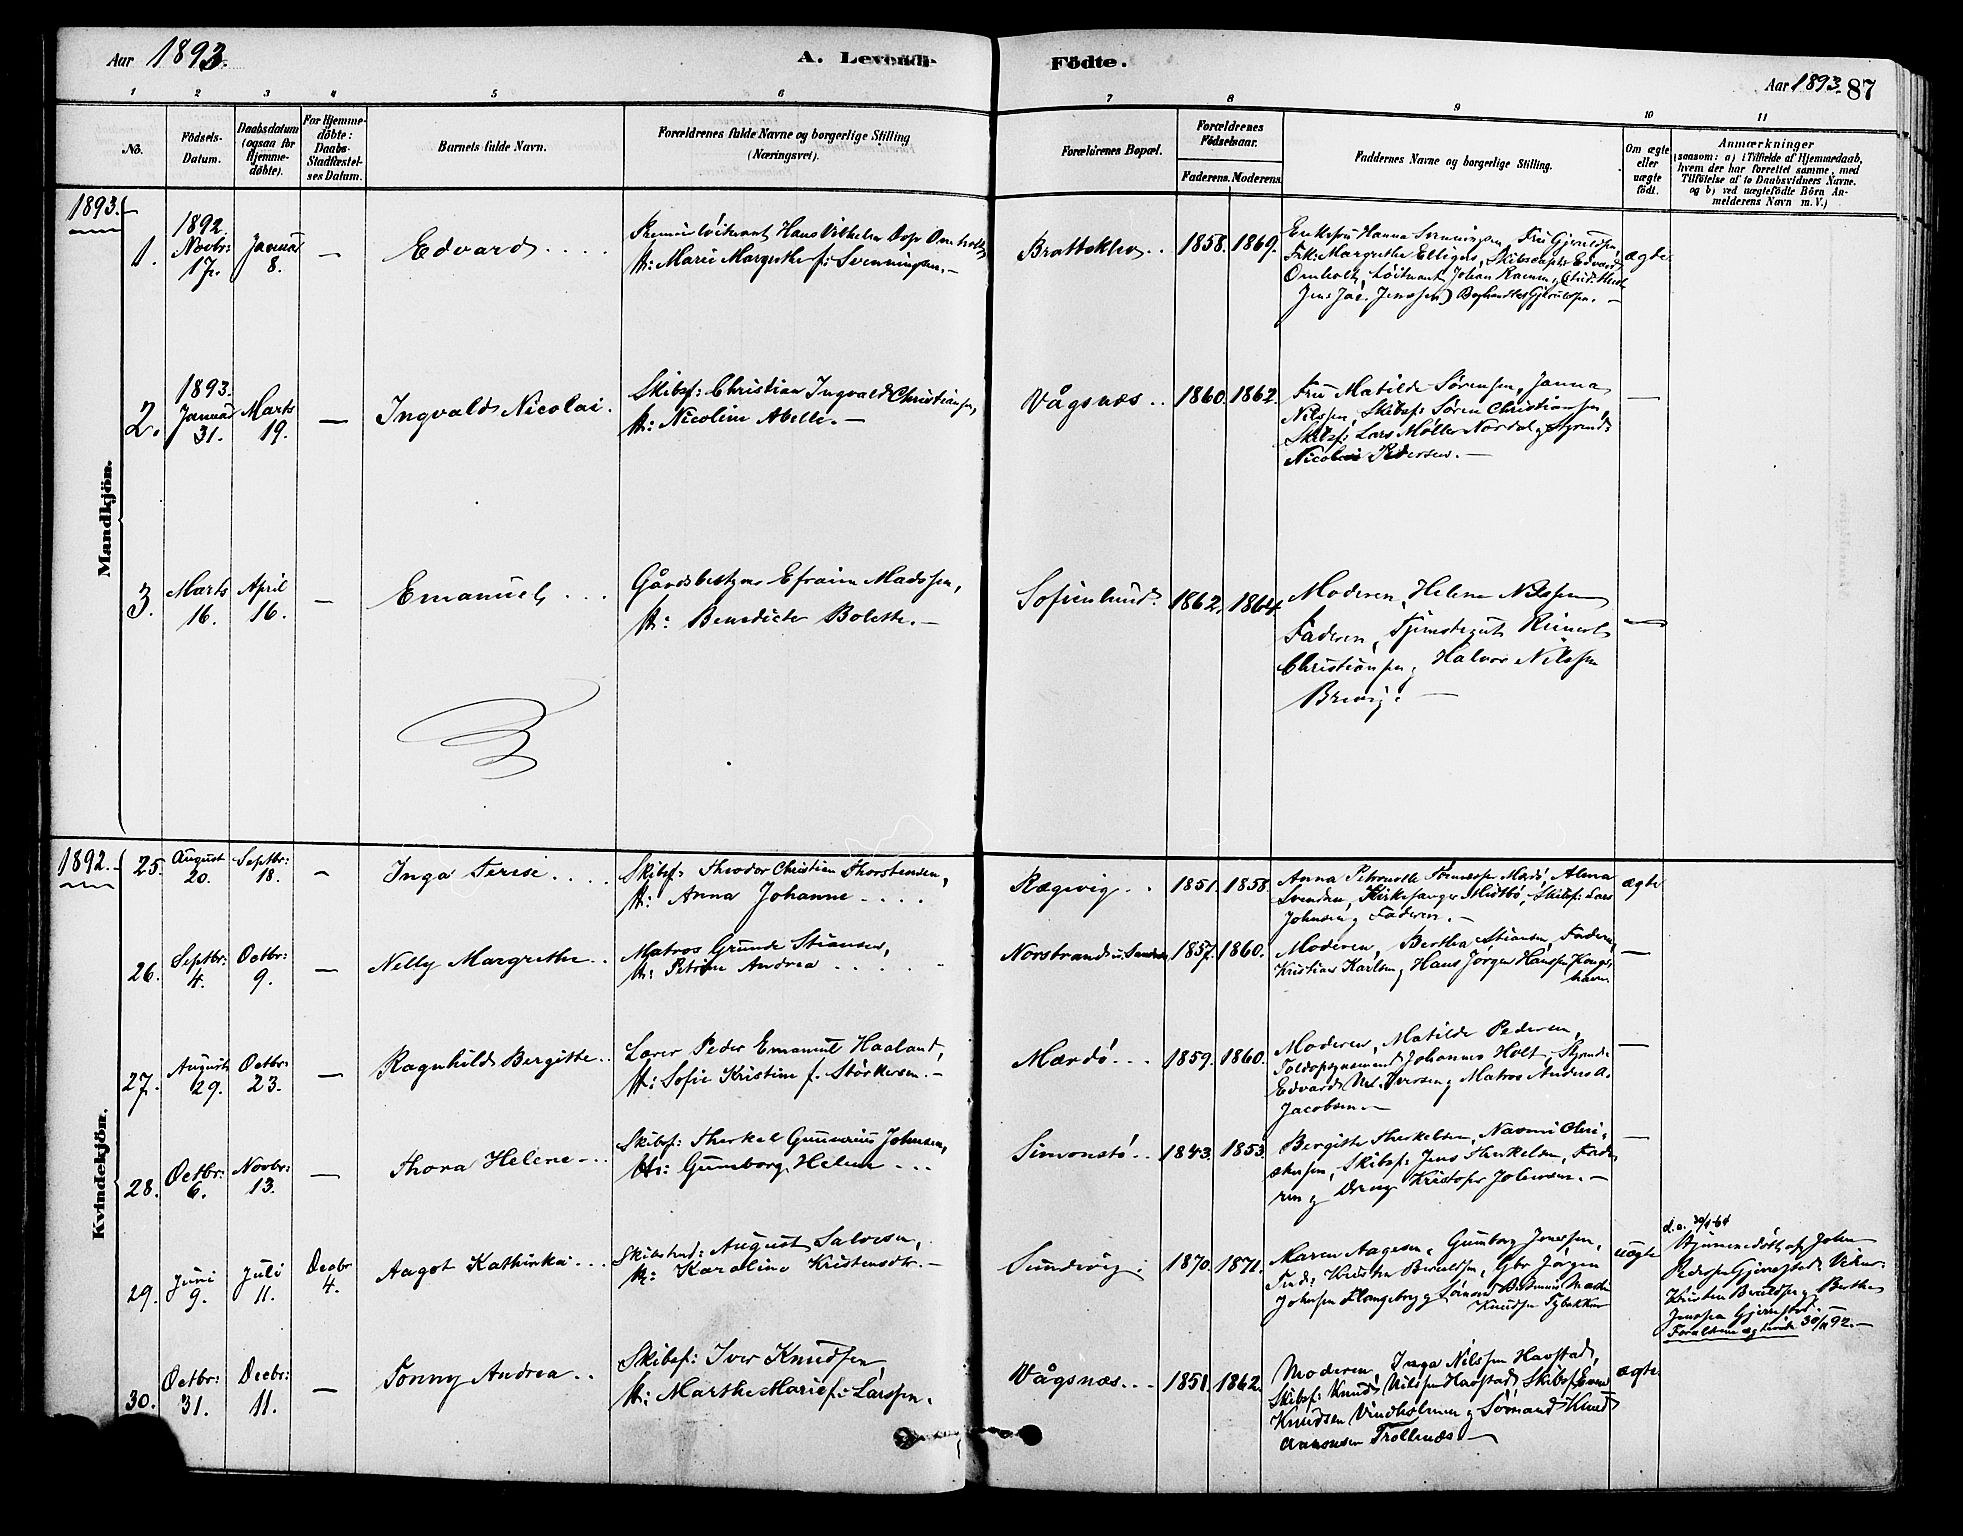 Aar 1893.
A. Levende Födte.
Aar 1893. 87
1 2 3 4 5 6 7 8 9 10 11
No.
Födsels-Datum.
Daabsdatum (ogsaa for Hjemme-döbte).
For Hjemme-döbte: Daabs-Stadfæstel-ses Datum.
Barnets fulde Navn.
Forældrenes fulde Navne og borgerlige Stilling (Næringsvei).
Forældrenes Bopæl.
Forældrenes Födselsaar.
Faderens. Moderens.
Faddernes Navne og borgerlige Stilling.
Om ægte eller uægte födt.
Anmærkninger
(saasom: a) i Tilfælde af Hjemmedaab, hvem der har forrettet samme, med Tilföielse af to Daabsvidners Navne. og b) ved uægtefödte Börn An-melderens Navn m. V.)
Mandkjön.
1893.
1. 1892. Novbr: 17. Januar 8. — Edvard
Premierlöitenant Hans Vilhelm Omholt
H: Marie Margrethe f: Svenningsen. —
Bratteklev 1858. 1869.
Enkefru Hanna Svenningsen, Fru Gjeruldsen,
Frk: Margrethe Elligers, Skibscapt: Edvard
Omholt, Löitenant Johan
Jens Jac. Jenssen Gjeruldsen. —
ægte
2. 1893. Januar 31. Marts 19. — Ingvald Nicolai.
Skibsf: Christian Ingvald Christiansen,
H: Nicoline Abelle. —
Vågsnæs 1860. 1862.
Fru Matilde Sørensen, Janna
Nilssen, Skibsf: Søren Christiansen,
Skibsf: Lars Møller Nordal og Styrmd:
Nicolai Pedersen. —
—
3. Marts 16. April 16. — Emanuel
Gårdsbestyrer Efraim Madssen,
H: Benedicte Bolette. —
Sofienlund. 1862. 1864.
Moderen, Helene Nilssen
Faderen, Tjenestegut Reinert
Christiansen, Halvor Nilssen
Brevig. —
—
Kvindekjön.
1892.
25. August 20. Septbr: 18. — Inga Terese
Skibsf: Theodor Christian Thorstensen,
H: Anna Johanne
Rægevig 1851. 1858.
Anna Petronelle Tønnesen Mærdö, Alena
Svendsen, Kirkesanger Midtbö, Skibsf: Lars
Johnsen og Faderen. —
ægte
26. Septbr: 4. Octbr: 9. — Nelly Margrethe
Matros Grunde Stiansen,
H: Petrine Andrea
Norstrand 1857. 1860.
Moderen, Bertha Stiansen, Faderen,
Kristian Karlsen, Hans Jørgen Hanssen Konge
havn
—
27. August 29. Octbr: 23. — Ragnhild Bergitte
Lærer Peder Emanuel Haaland,
H: Sofie Kristine f. Størkersen. —
Mærdö 1859. 1860.
Moderen, Matilde Pedersen,
Toldopsynsmand Johannes Holt, Styrmd:
Edvard Iversen og Matros Anders A.
Jacobsen. —
—
28. Octbr: 6. Novbr: 13. — Thora Helene
Skibsf: Therkel Gunnerius Johnsen,
H: Gunborg Helene
Simonstö 1843. 1853.
Bergitte Therkelsen, Naomi Chri-
stensen, Skibsf: Jens Therkelsen, Fade-
ren og Dreng Kristofer Johnsen. —
—
29. Juni 9. Juli 11. Decbr 4. Aagot Kathinka
Skibstmd: August Salvesen,
H: Karoline Kristensdtr. —
Sundvig 1870. 1871.
Maren Aagesen, Gunborg Jenssen,
Kristen Beruldsen, Gbr Jörgen
Johnsen Flangeborg og Mads
Knudsen Tybakken
uægte
d. a. 30/4 64
Hjemmedöbt af John
Pedersen Gjerrestad Vidner:
Kristen Beruldsen og Berthe
Jenssen Gjerrestad.
Forældrene ægteviede 30/11 92. —
30. Octbr: 31. Decbr: 11. — Tonny Andrea
Skibsf: Iver Knudsen,
H: Marthe Marie f: Larssen.
Vågsnæs 1851. 1862.
Moderen, Inga Nilssen Havstad,
Skibsf: Knud Nilssen Havstad, Skibsf: Even
Knudsen Vindholmen og Sömand Knud
Aanonsen Trollnæs —
ægte